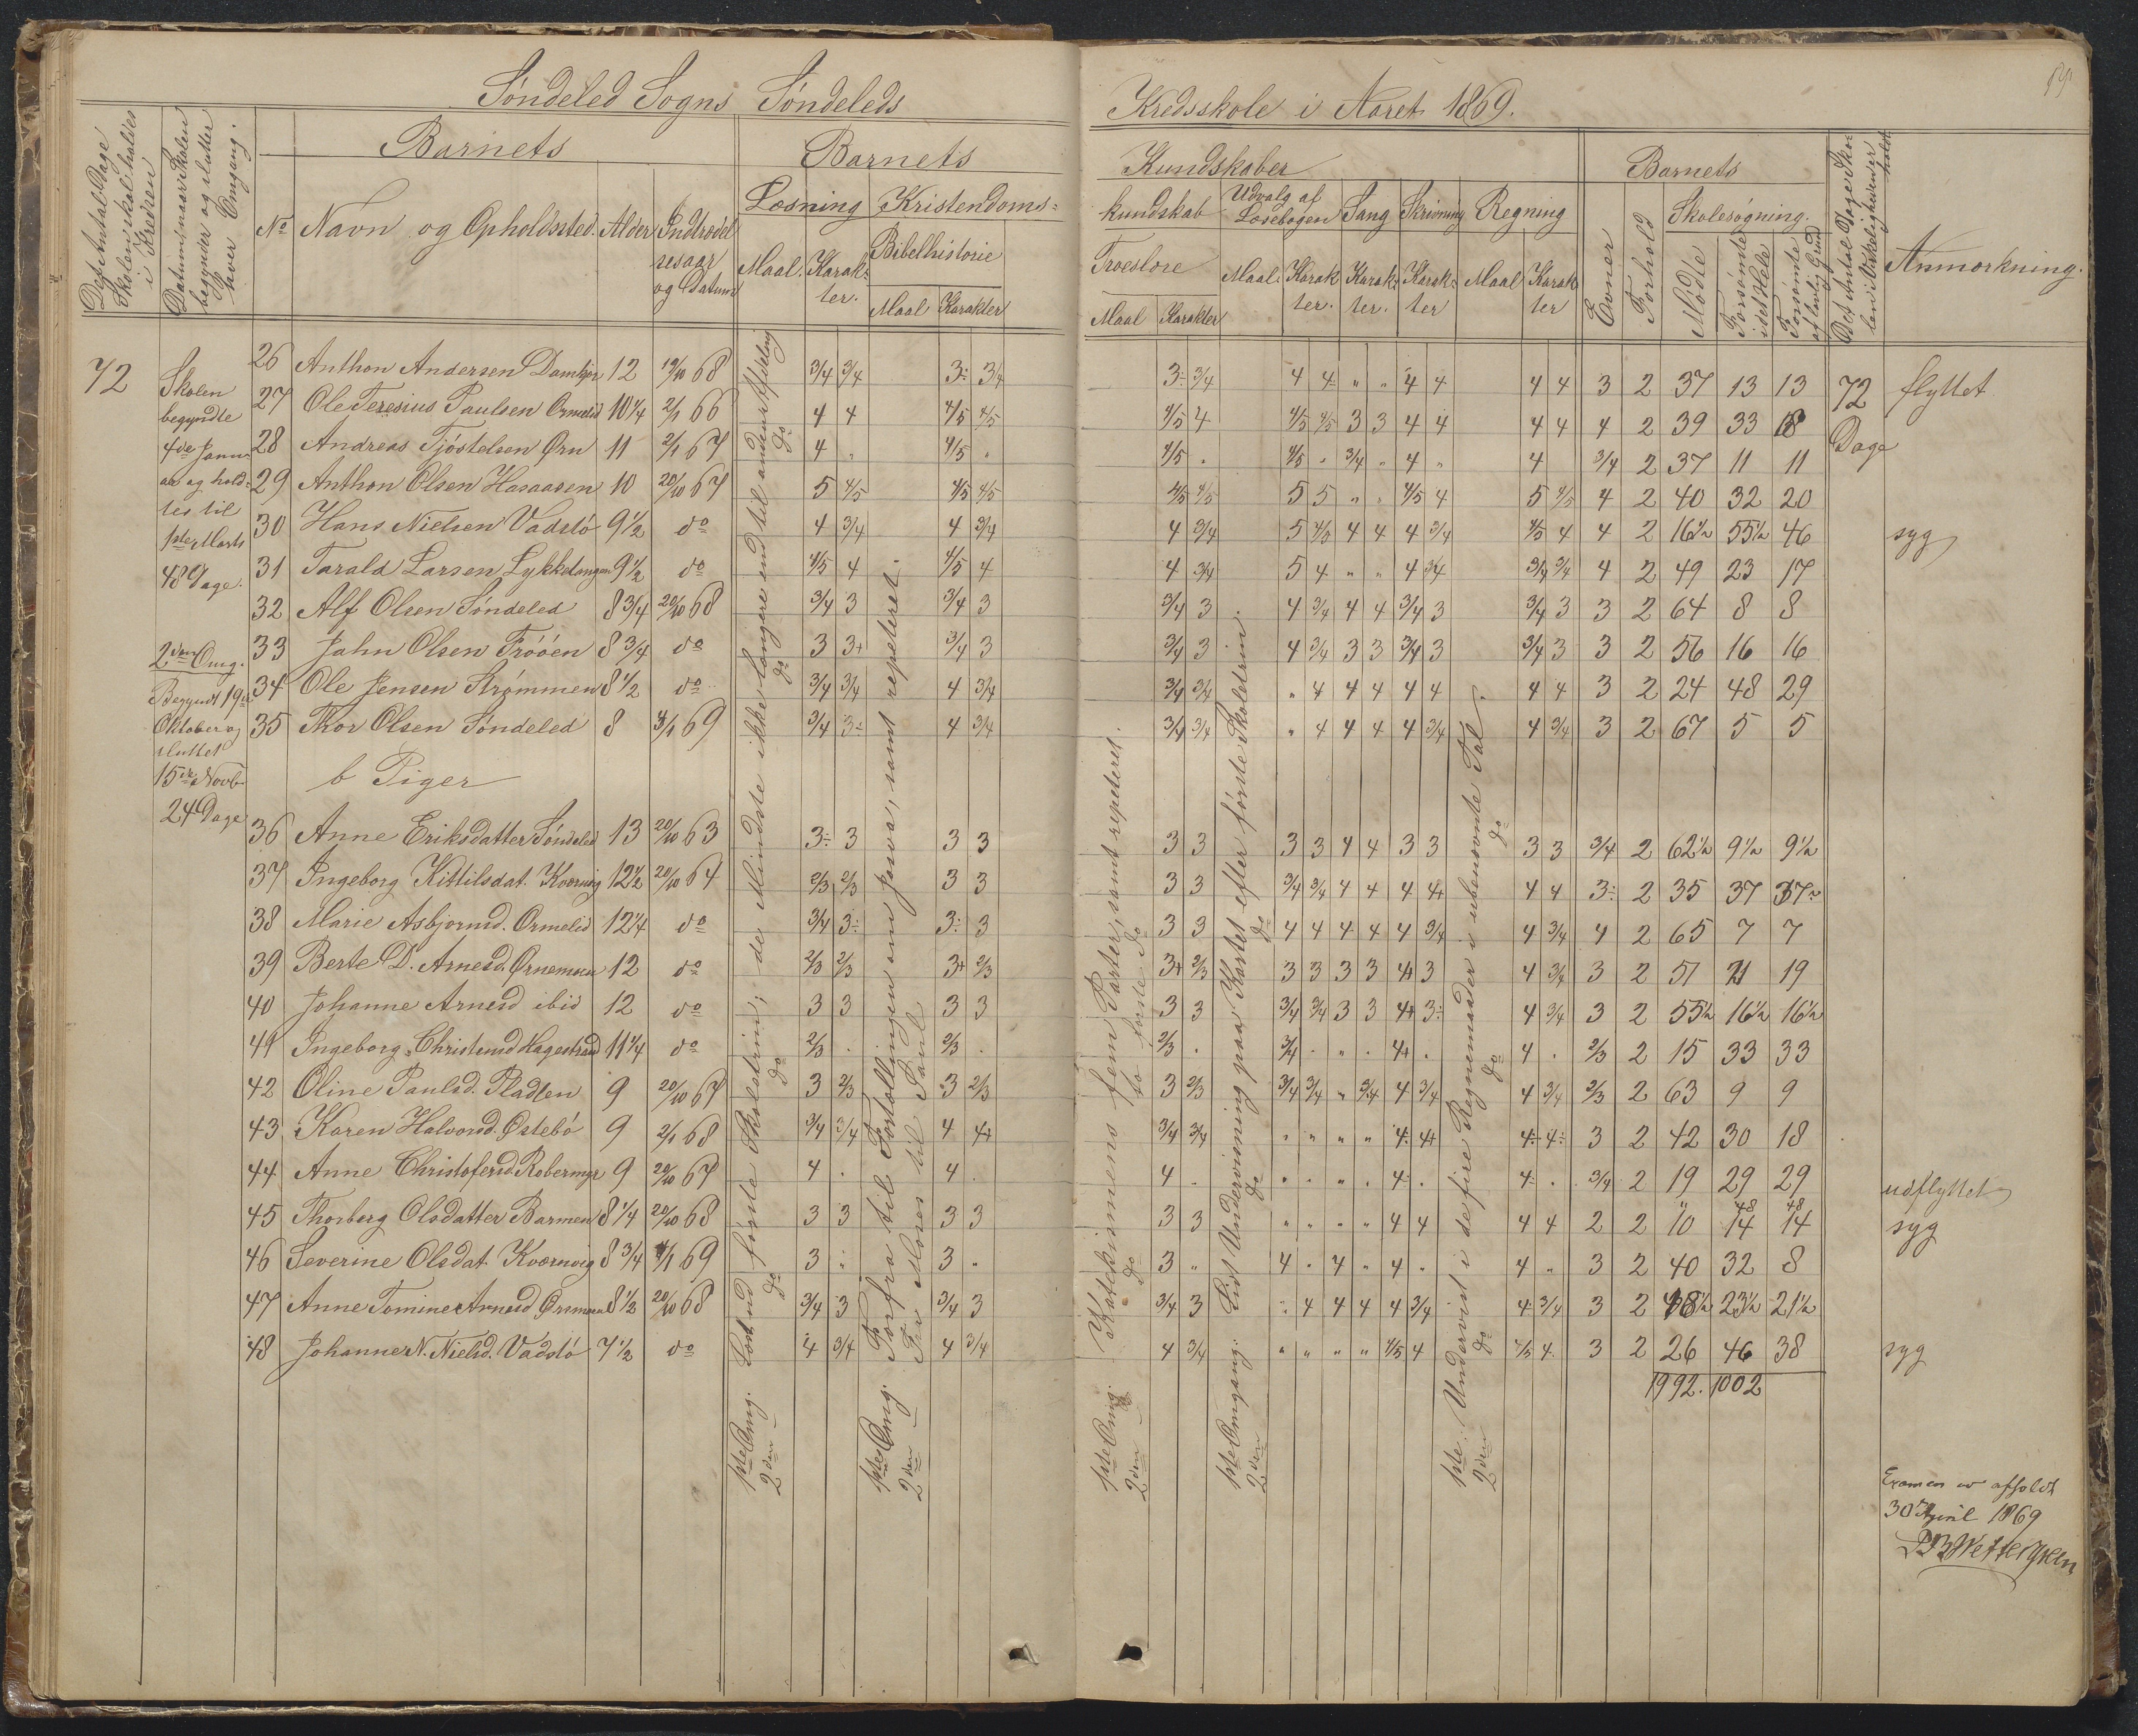 Søndeled Sogns Søndeleds Kredsskole i Aaret 1869.
Det Antal Dage Skolen skal holdes i Kredsen
Datum, naar Skolen begynder og slutter hver Omgang.
Barnets
No Navn og Opholdssted. Alder Indtrædelsesaar og Datum
Barnets Kundskaber
Læsning Kristendomskundskab Udvalg af Læsebogen Sang Skrivning Regning
Maal. Karakter. Bibelhistorie Troeslære Maal Karakter. Karakter. Karakter Maal Karakter
Maal Karakter Maal Karakter
Barnets
Evner Forhold Skolesøgning.
Mødte Forsømte i det Hele Forsømte af lovlig Grund
Det Antal Dage Skolen i Virkeligheden er holdt
Anmærkning.
72
Skolen
begyndte
4de Janu-
ar og hold-
tes til
1ste Marts
48 Dage.
2den Omg.
Begyndt 19de
Oktober og
sluttet
15de Novb
24 Dage
26 Anthon Andersen 12 19/10 68 3/4 3/4 3÷ 3/4 3÷ 3/4 4 4 " " 4 4 4 4 3 2 37 13 13 72 flyttet
27 Ole Teresius Paulsen Ormelid 10 1/4 2/1 66 4 4 4/5 4/5 4/5 4 4/5 4/5 3 3 4 4 4 4 4 2 39 33 18 Dage
28 Andreas Tjøstelsen Ørn 11 2/1 67 4 " 4/5 " 4/5 " 4/5 " 3/4 " 4 " 4 3/4 2 37 11 11
29 Anthon Olsen Hasaasen 10 20/10 67 5 4/5 4/5 4/5 4/5 4/5 5 5 " " 4/5 4 5 4/5 4 2 40 32 20
30 Hans Nielsen Vadslø 9 1/2 do 4 3/4 4 3/4 4 3/4 5 4/5 4 4 4 3/4 4/5 4 4 2 16 1/2 55 1/2 46 syg
31 Tarald Larsen 9 1/2 do 4/5 4 4/5 4 4 3/4 5 4 " " 4 3/4 3/4 3/4 4 2 49 23 17
32 Alf Olsen Søndeled 8 3/4 20/10 68 3/4 3 3/4 3 3/4 3 4 3/4 4 4 3/4 3 3/4 3 3 2 64 8 8
33 Jahn Olsen Trøøen 8 3/4 do 3 3+ 3/4 3 3/4 3 4 3/4 3 3 3/4 3 3/4 3 3 2 56 16 16
34 Ole Jensen Strømmen 8 1/2 do 3/4 3/4 4 3/4 3/4 3/4 " 4 4 4 4 4 4 4 3 2 24 48 29
35 Thor Olsen Søndeled 8 4/1 69 3/4 3÷ 4 3/4 3/4 3/4 " 4 4 4 4 3/4 4 3/4 3 2 67 5 5
b Piger
36 Anne Eriksdatter Søndeled 13 20/10 63 3÷ 3 3 3 3 3 3 3 4 4 3 3 3 3 3/4 2 62 1/2 9 1/2 9 1/2
37 Ingeborg Kittilsdat. Kværnvig 12 1/2 20/10 64 2/3 2/3 3 3 3 3 3/4 3/4 4 4 4 4+ 4 4 3÷ 2 35 37 37
38 Marie Asbjørnsd. Ormelid 12 1/4 do 3/4 3÷ 3÷ 3 3 3 4 4 4 4 4 3/4 4 3/4 4 2 65 7 7
39 Berte D. Arnesd. Ørnemoen 12 do 2/3 2/3 3+ 2/3 3+ 2/3 3 3 3 3 4+ 3 4 3/4 3 2 51 21 19
40 Johanne Arnesd ibid 12 do 3 3 3 3 3 3 3/4 3/4 3 3 4+ 3÷ 4 3/4 3 2 55 1/2 16 1/2 16 1/2
41 Ingeborg Christensd Hagestrand 11 1/4 do 2/3 . 2/3 . 2/3 . 3/4 . . . 4+ . 4 . 2/3 2 15 33 33
42 Oline Paulsd. Pladsen 9 20/10 67 3 2/3 3 2/3 3 2/3 3/4 3/4 " 3/4 4 3/4 4 3/4 2/3 2 63 9 9
43 Karen Halvorsd. Østebø 9 2/1 68 3/4 3/4 4 4+ 3/4 3/4 " " " " 4÷ 4+ 4÷ 4÷ 3 2 42 30 18
44 Anne Christofersd Robermyr 9 20/10 67 4 . 4 . 4 . " " " . 4÷ . 4÷ . 3/4 2 19 29 29 udflyttet
45 Thorberg Olsdatter Barmen 8 1/4 20/10 68 3 3 3 3 3 3 " " " " 4 4 4 4 2 2 10 14 48 14 48 syg
46 Severine Olsdat. Kværnvig 8 3/4 4/1 69 3 " 3 " 3 " 4 . 4 " 4 . 4 " 3 2 40 32 8
47 Anne Tomine Arnesd Ørnmoen 8 1/2 20/10 68 3/4 3 3/4 3 3/4 3 " 4 4 4 4 3/4 4 3/4 3 2 48 1/2 23 1/2 21 1/2
48 Johanne N. Nielsd. Vadslø 7 1/2 do 4 3/4 4 3/4 4 3/4 " " " " 4/5 4 4/5 4 3 2 26 46 38 syg
1992. 1002
1ste Omg. Læst ud første Skoletrin; de Mindste ikke længere end til anden Afdeling
2den do do do
1ste Omg. Forfra til Fortællingen om Josva, samt repeteret.
2den Fra Moses til Saul
1ste Omg. Katekismens fem Parter, samt repeteret.
2den do do to første do
1ste Omgang. Lidt Undervisning paa Kartet efter første Skoletrin
2den do do
1ste. Undervist i de fire Regnemaader i ubenævnte Tal.
2den do do do
Examen er afholdt
30te April 1869